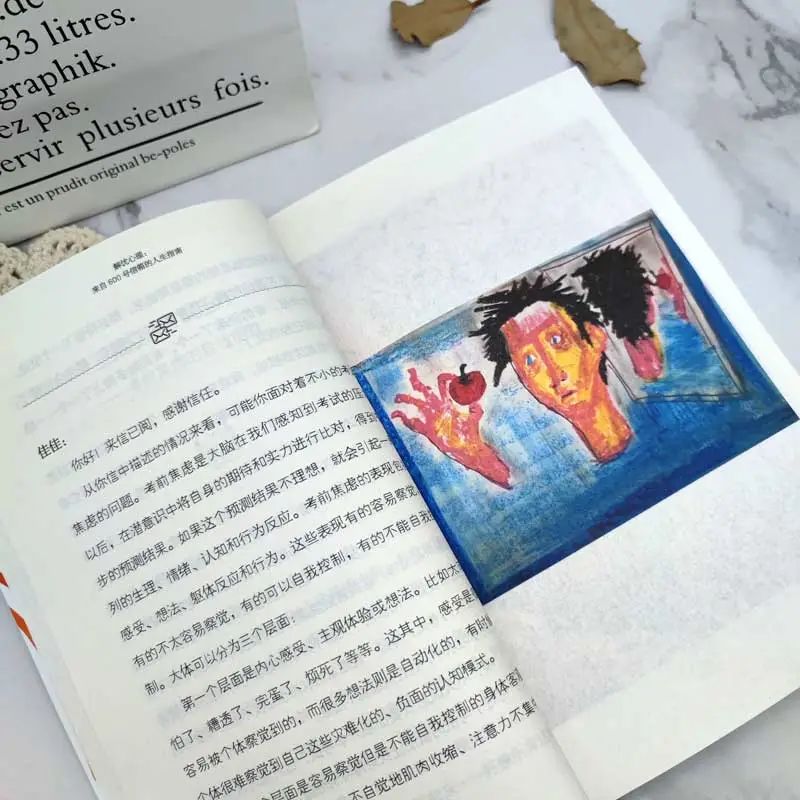 .de
33 litres.
graphik.
ez pas.
servir plusieurs fois.
est un prudit original be-poles
解忧心理：
来自 600 号信箱的人生指南
佳佳：
你好！来信已阅，感谢信任。
从你信中描述的情况来看，可能你面对着不小的考
焦虑的问题。考前焦虑是大脑在我们感知到考试的压
以后，在潜意识中将自身的期待和实力进行比对，得到
步的预测结果。如果这个预测结果不理想，就会引起一
列的生理、情绪、认知和行为反应。考前焦虑的表现包
感受、想法、躯体反应和行为。这些表现有的容易察觉
有的不太容易察觉，有的可以自我控制，有的不能自我
制。大体可以分为三个层面：
第一个层面是内心感受、主观体验或想法。比如太
怕了、糟透了、完蛋了、烦死了等等。这其中，感受是
容易被个体察觉到的，而很多想法则是自动化的，有时候
个体很难察觉到自己这些灾难化的、负面的认知模式。
个层面是容易察觉但是不能自我控制的身体客
不自觉地肌肉收缩、注意力不集